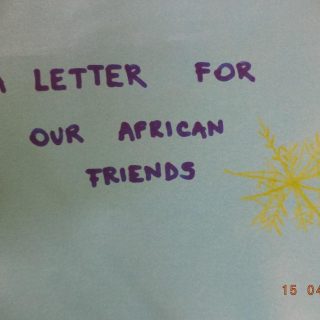 A LETTER FOR
OUR AFRICAN
FRIENDS
15 04